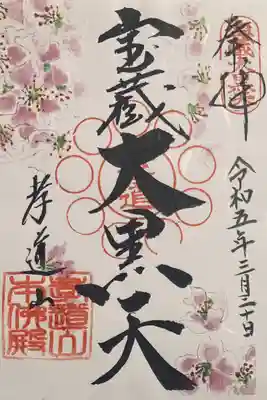 奉拝
令和五年三月二十日
宝蔵大黒天
孝道山
孝道山
本佛殿